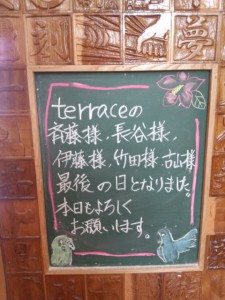 夢
terraceの
斉藤様、長谷様、
伊藤様、竹田様、古山様
最後の日となりました。
本日もよろしく
お願いします。